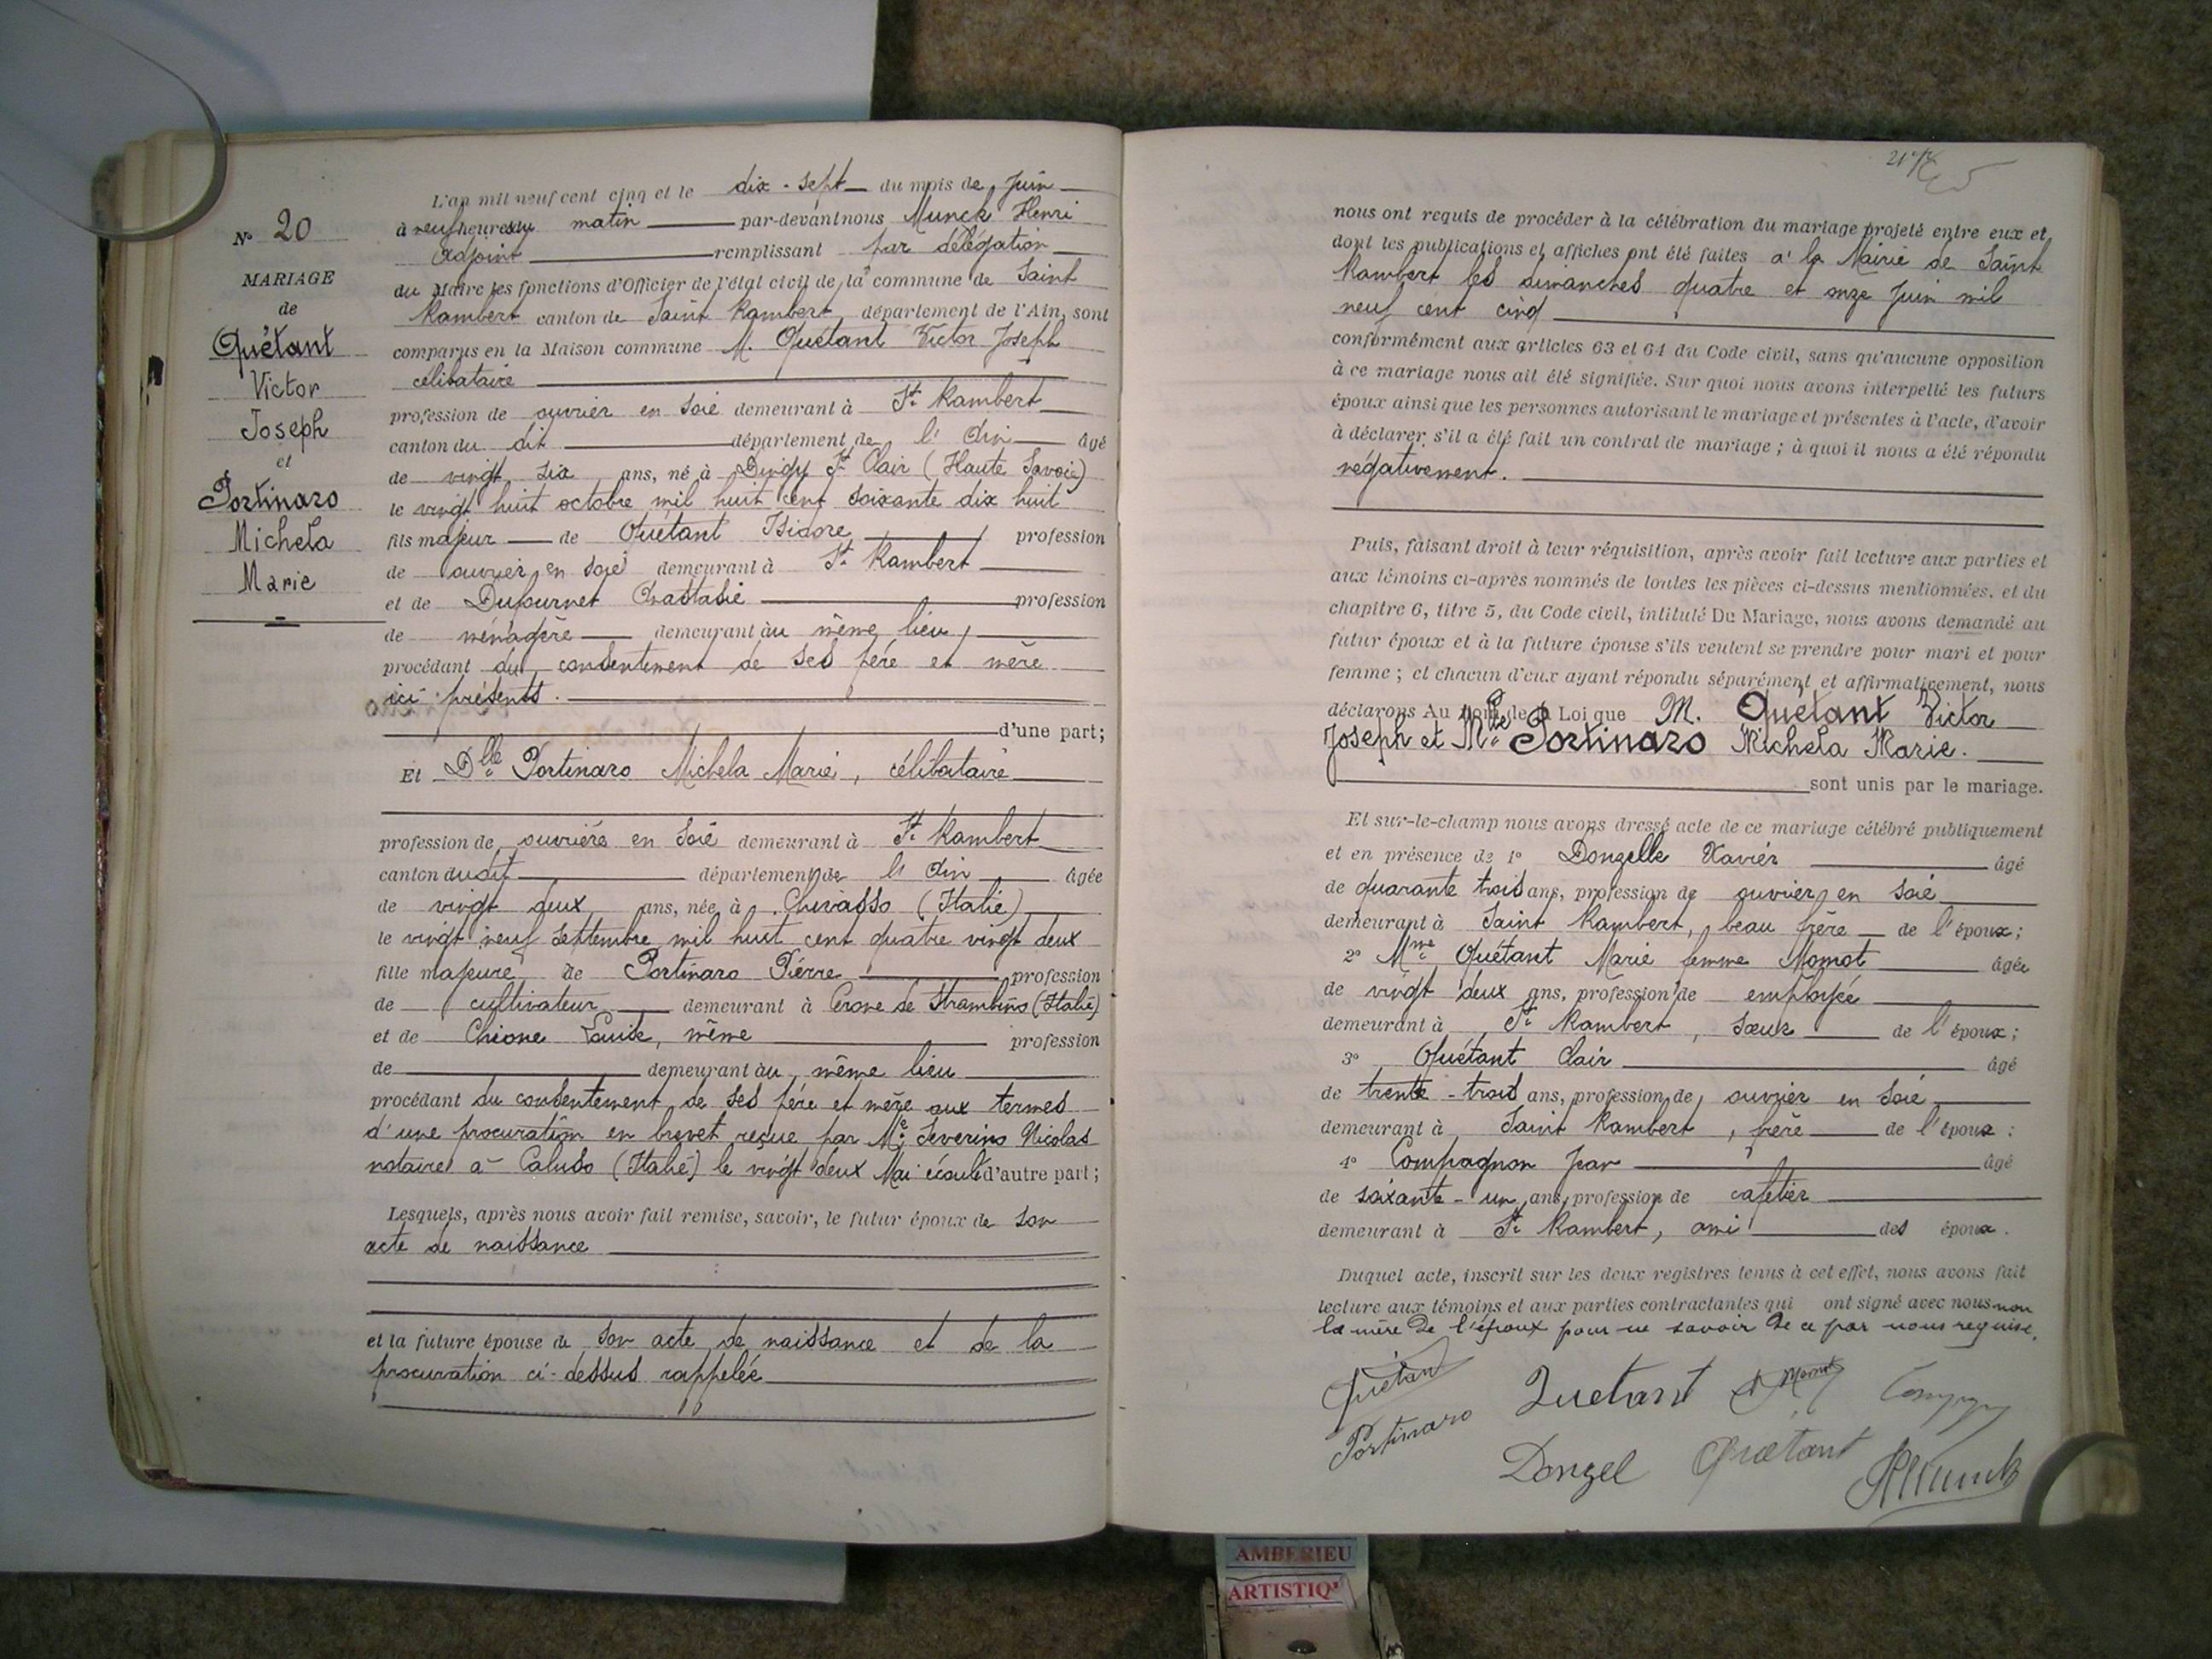 N° 20
MARIAGE
de
Quétant
Victor
Joseph
et
Portinaro
Michela
Marie
L'an mil neuf cent cinq et le dix-sept du mois de Juin
à neuf heures du matin par-devant nous Munck Henri
Adjoint remplissant par délégation
du Maire les fonctions d'Officier de l'état civil de la commune de Saint
Rambert canton de Saint Rambert, département de l'Ain, sont
comparus en la Maison commune M. Quétant Victor Joseph
célibataire
profession de ouvrier en soie demeurant à St Rambert
canton du dit département de l'Ain âgé
de vingt six ans, né à Dingy St Clair (Haute Savoie)
le vingt huit octobre mil huit cent soixante dix huit
fils majeur de Quétant Isidore profession
de ouvrier en soie demeurant à St Rambert
et de Dufournet Anastasie profession
de ménagère demeurant au même lieu,
procédant du consentement de ses père et mère
ici présents.
d'une part;
Et Dlle Portinaro Michela Marie, célibataire
profession de ouvrière en soie demeurant à St Rambert
canton dudit département de l'Ain âgée
de vingt deux ans, née à Chivasso (Italie)
le vingt neuf septembre mil huit cent quatre vingt deux
fille majeure de Portinaro Pierre profession
de cultivateur demeurant à Cerone de Strambino (Italie)
et de Chione Louise, même profession
de demeurant au même lieu
procédant du consentement de ses père et mère aux termes
d'une procuration en brevet reçue par Me Severino Nicolas
notaire à Caluso (Italie) le vingt deux Mai écoulé d'autre part;
Lesquels, après nous avoir fait remise, savoir, le futur époux de son
acte de naissance
et la future épouse de son acte de naissance et de la
procuration ci-dessus rappelée
nous ont requis de procéder à la célébration du mariage projeté entre eux et
dont les publications et affiches ont été faites à la Mairie de Saint
Rambert les dimanches quatre et onze Juin mil
neuf cent cinq
conformément aux articles 63 et 64 du Code civil, sans qu'aucune opposition
à ce mariage nous ait été signifiée. Sur quoi nous avons interpellé les futurs
époux ainsi que les personnes autorisant le mariage et présentes à l'acte, d'avoir
à déclarer s'il a été fait un contrat de mariage; à quoi il nous a été répondu
négativement.
Puis, faisant droit à leur réquisition, après avoir fait lecture aux parties et
aux témoins ci-après nommés de toutes les pièces ci-dessus mentionnées, et du
chapitre 6, titre 5, du Code civil, intitulé Du Mariage, nous avons demandé au
futur époux et à la future épouse s'ils veulent se prendre pour mari et pour
femme; et chacun d'eux ayant répondu séparément et affirmativement, nous
déclarons Au nom de la Loi que M. Quétant Victor
Joseph et Mlle Portinaro Michela Marie.
sont unis par le mariage.
Et sur-le-champ nous avons dressé acte de ce mariage célébré publiquement
et en présence de 1° Donzelle Xavier âgé
de quarante trois ans, profession de ouvrier en soie
demeurant à Saint Rambert, beau frère de l'époux;
2° Mme Quétant Marie femme Momot âgée
de vingt deux ans, profession de employée
demeurant à St Rambert, sœur de l'époux;
3° Quétant Clair âgé
de trente-trois ans, profession de ouvrier en soie
demeurant à Saint Rambert, frère de l'époux;
4° Compagnon âgé
de soixante-un ans, profession de cafetier
demeurant à St Rambert, ami des époux.
Duquel acte, inscrit sur les deux registres tenus à cet effet, nous avons fait
lecture aux témoins et aux parties contractantes qui ont signé avec nous non
la mère de l'époux pour ne savoir de ce par nous requise.
Quétant Quetant Momot
Portinaro
Donzel Quétant HMunck
AMBERIEU
ARTISTIQ'